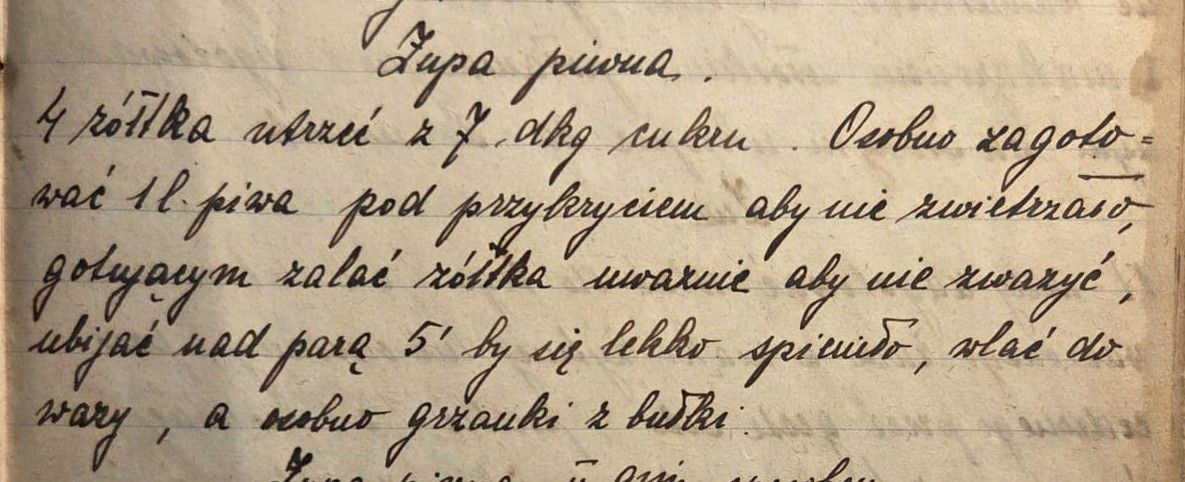 Zupa piwna.
4 żółtka utrzeć z 7 dkg cukru. Osobno zagoto=
wać 1 l. piwa pod przykryciem aby nie zwietrzało,
gotującym zalać żółtka uważnie aby nie zważyć,
ubijać nad parą 5' by się lekko spieniło, wlać do
wazy, a osobno grzanki z bułki.
Zupa